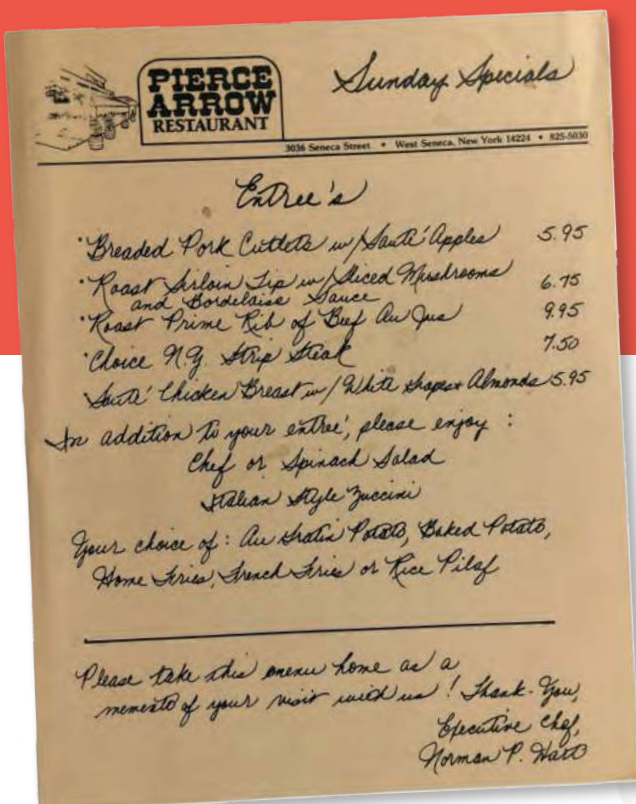 PIERCE
ARROW
RESTAURANT
Sunday Specials
3036 Seneca Street • West Seneca, New York 14224 • 825-5030
Entree's
· Breaded Pork Cutlets w/ Sauté Apples 5.95
· Roast Sirloin Tip w/ Sliced Mushrooms
and Bordelaise Sauce 6.75
· Roast Prime Rib of Beef Au Jus 9.95
· Choice N.Y. Strip Steak 7.50
Sauté Chicken Breast w/ White Grapes + Almonds 5.95
In addition to your entreé, please enjoy :
Chef or Spinach Salad
Italian Style Zuccini
Your choice of : Au Gratin Potato, Baked Potato,
Home Fries, French Fries or Rice Pilaf
Please take this menu home as a
memento of your visit with us ! Thank-You,
Executive Chef,
Norman P. Hart